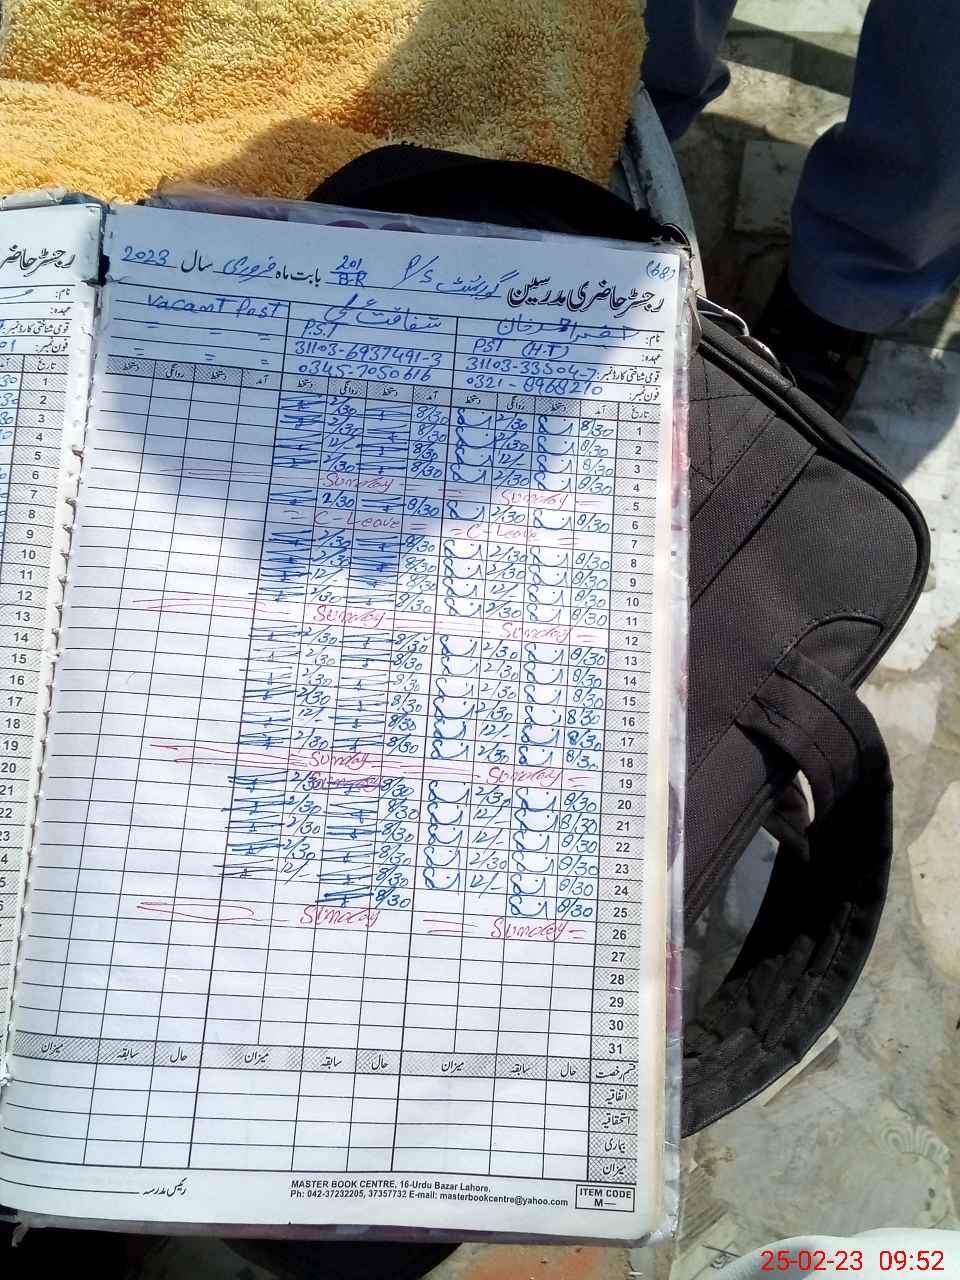 رجسٹر حاضری مدرسین گورنمنٹ P/S 201/B-R بابت ماہ فروری سال 2023
(68)
رجسٹر حاضر
نام: خان شفاقت Vacant Post
عہدہ: PST (H.T) P.S.T = = =
قومی شناختی کارڈ نمبر: 31103-33304-7 31103-6937491-3
فون نمبر: 0321-8968210 0345-7050616 = = =
تاریخ آمد دستخط روانگی دستخط آمد دستخط روانگی دستخط آمد دستخط روانگی دستخط
1 8/30 2/30 8/30 2/30
2 8/30 2/30 8/30 2/30
3 8/30 12/- 8/30 12/-
4 8/30 2/30 8/30 2/30
5 = Sunday = Sunday =
6 8/30 2/30 8/30 2/30
7 = C-Leave = = C-Leave =
8 8/30 2/30 8/30 2/30
9 8/30 2/30 8/30 2/30
10 8/30 12/- 8/30 12/-
11 8/30 2/30 8/30 2/30
12 Sunday = Sunday
13 8/30 2/30 8/30 2/30
14 8/30 2/30 8/30 2/30
15 8/30 2/30 8/30 2/30
16 8/30 2/30 8/30 2/30
17 8/30 12/- 8/30 12/-
18 8/30 2/30 8/30 2/30
19 Sunday = Sunday
20 8/30 2/30 8/30 2/30
21 8/30 12/- 8/30 2/30
22 8/30 12/- 8/30 2/30
23 8/30 2/30 8/30 2/30
24 8/30 12/- 8/30 12/-
25 8/30 8/30
26 = Sunday = Sunday
27
28
29
30
31
قسم رخصت حال سابقہ میزان حال سابقہ میزان حال سابقہ میزان
اتفاقیہ
استحقاقیہ
بیماری
میزان
رئیس مدرسہ
MASTER BOOK CENTRE, 16-Urdu Bazar Lahore,
Ph: 042-37232205, 37357732 E-mail: masterbookcentre@yahoo.com
ITEM CODE
M—
25-02-23 09:52